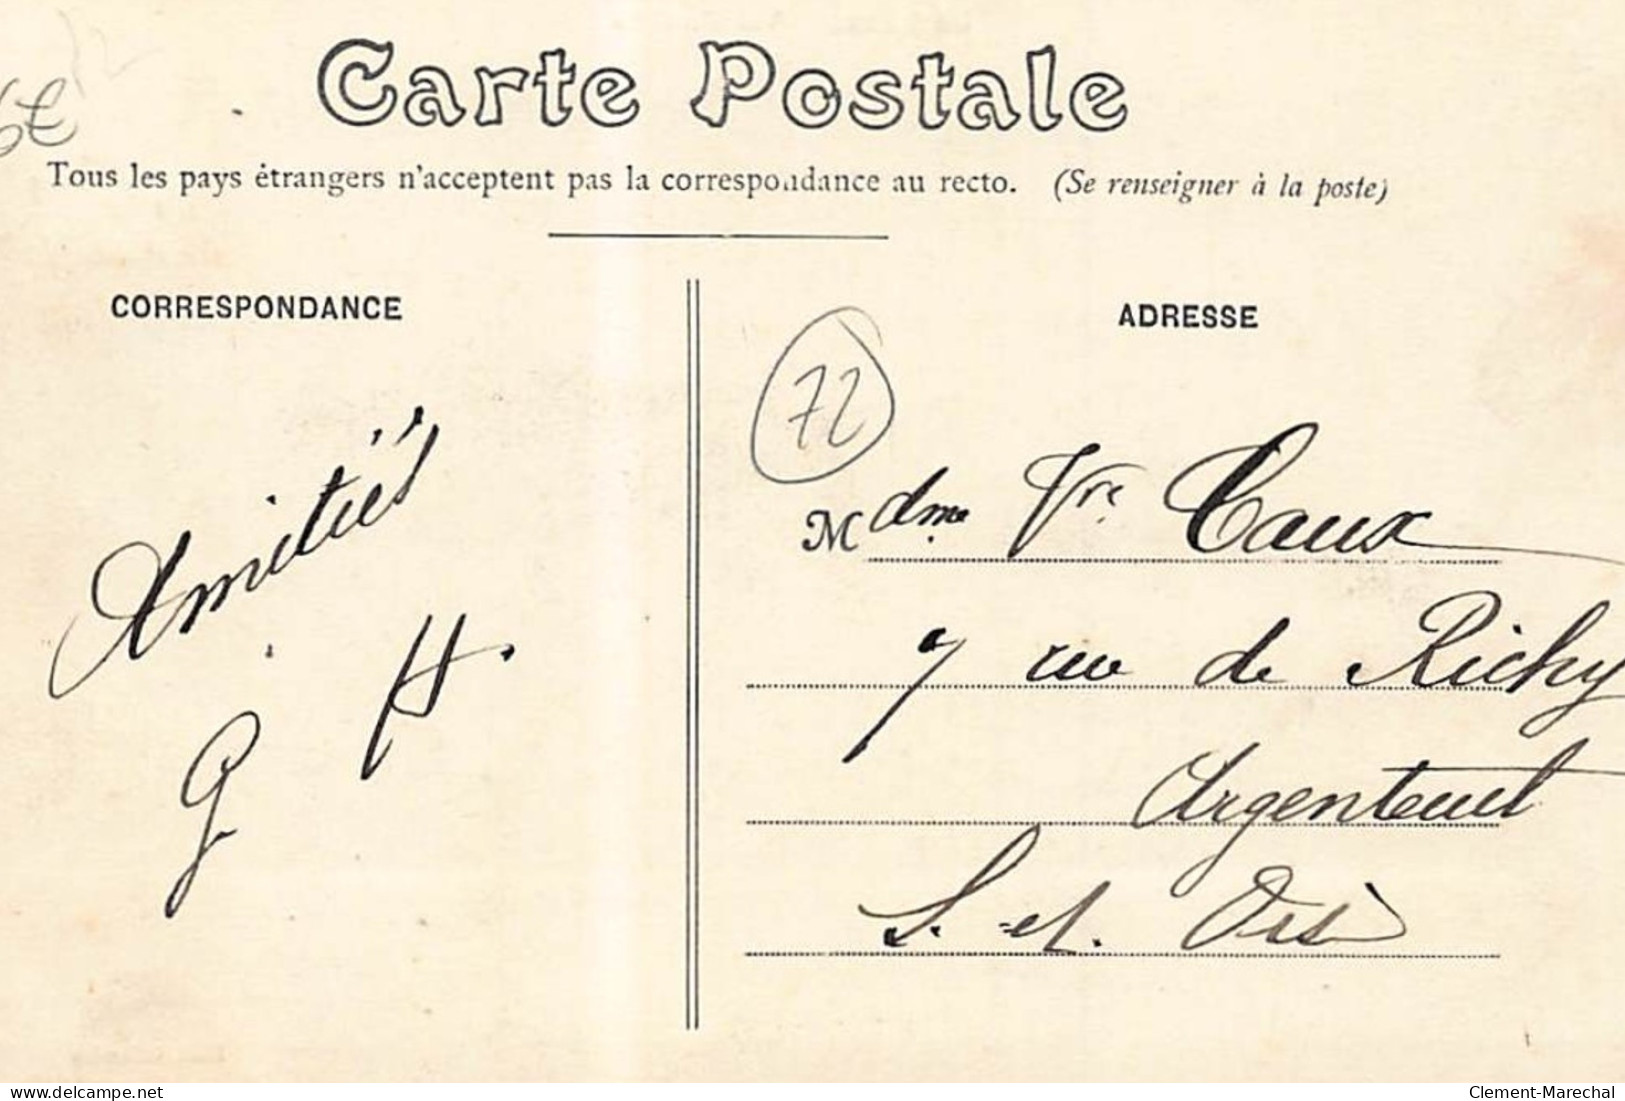 6€
Carte Postale
Tous les pays étrangers n'acceptent pas la correspondance au recto. (Se renseigner à la poste)
CORRESPONDANCE
Amitiés
G H.
ADRESSE
72
Mdme Vve Caux
7 rue de Richy
Argenteuil
S. et. Oise
delcampe.net
Clement-Marechal